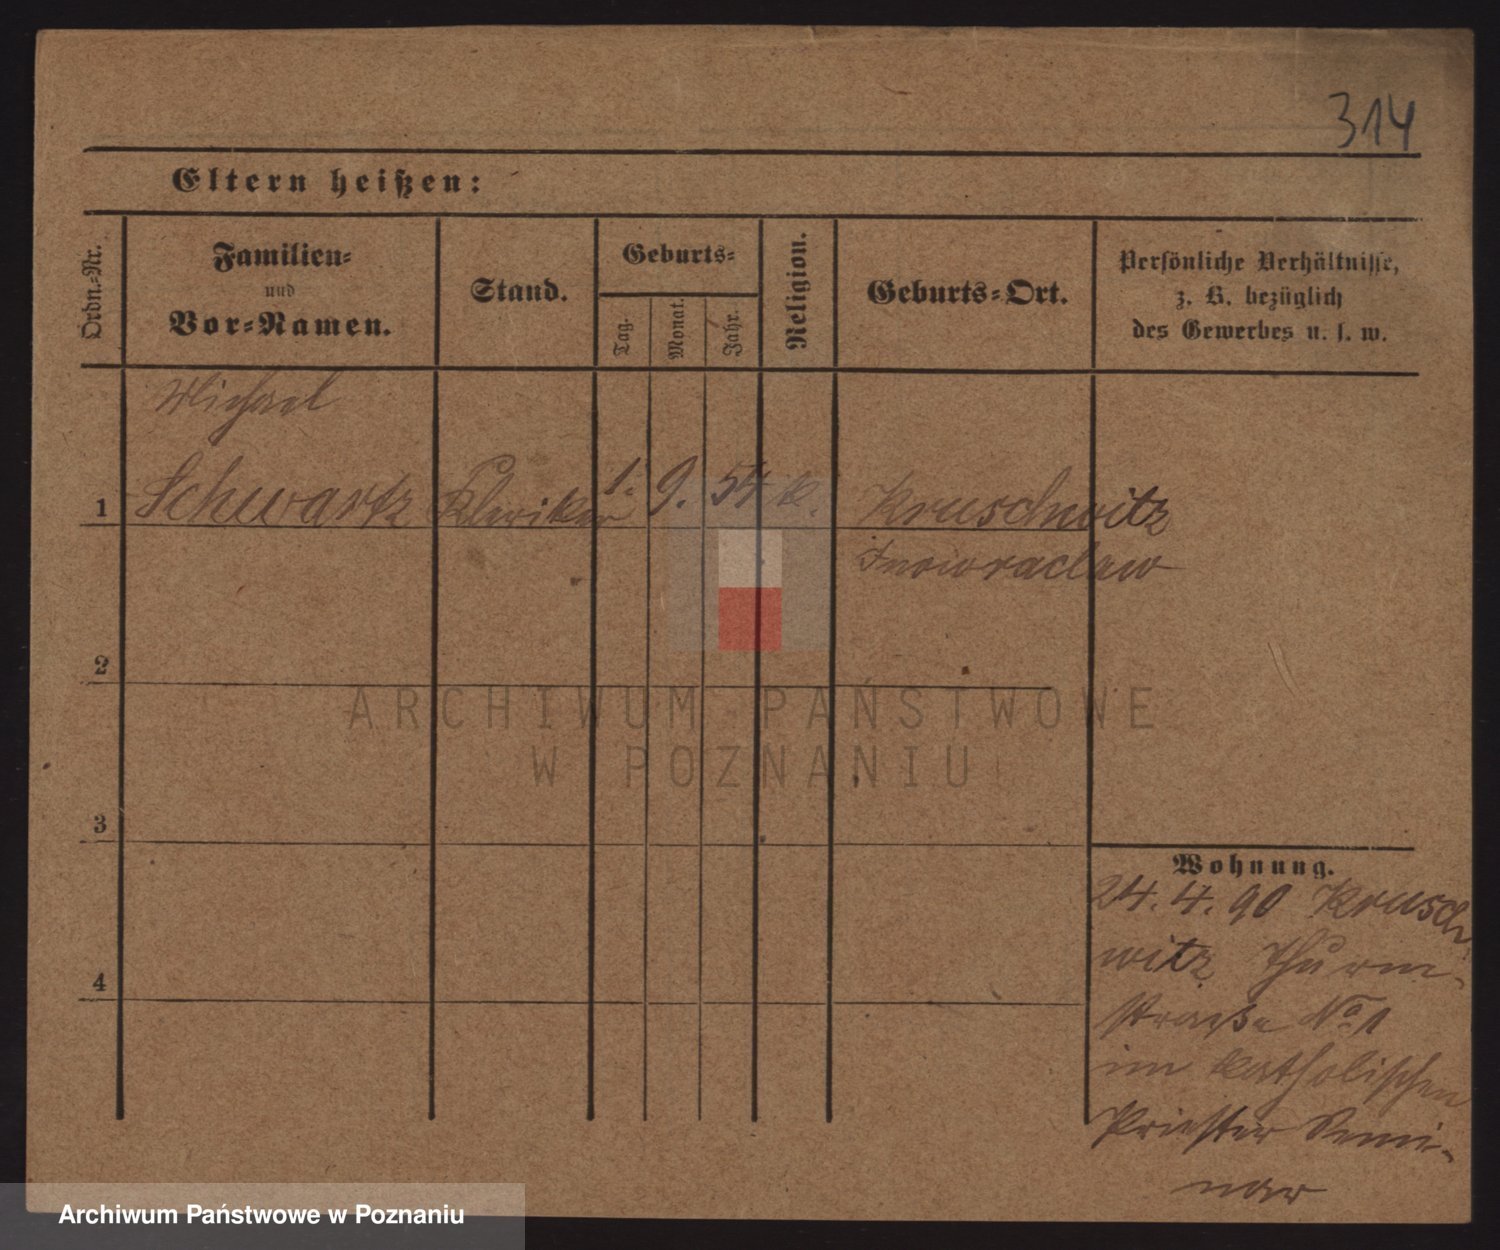 314
Eltern heißen:
Ordn.-Nr.
Familien-
und
Vor-Namen.
Stand.
Geburts-
Tag.
Monat.
Jahr.
Religion.
Geburts-Ort.
Persönliche Verhältnisse,
z. B. bezüglich
des Gewerbes u. s. w.
Michael
1 Schwartz Kleriker 1. 9. 54 k. Kruschwitz
Inowraclaw
2
ARCHIWUM PAŃSTWOWE
W POZNANIU
3
Wohnung.
24. 4. 90 Krusch
witz Thurm-
straße No 1
4
im katholischen
Priester Semi-
nar
Archiwum Państwowe w Poznaniu